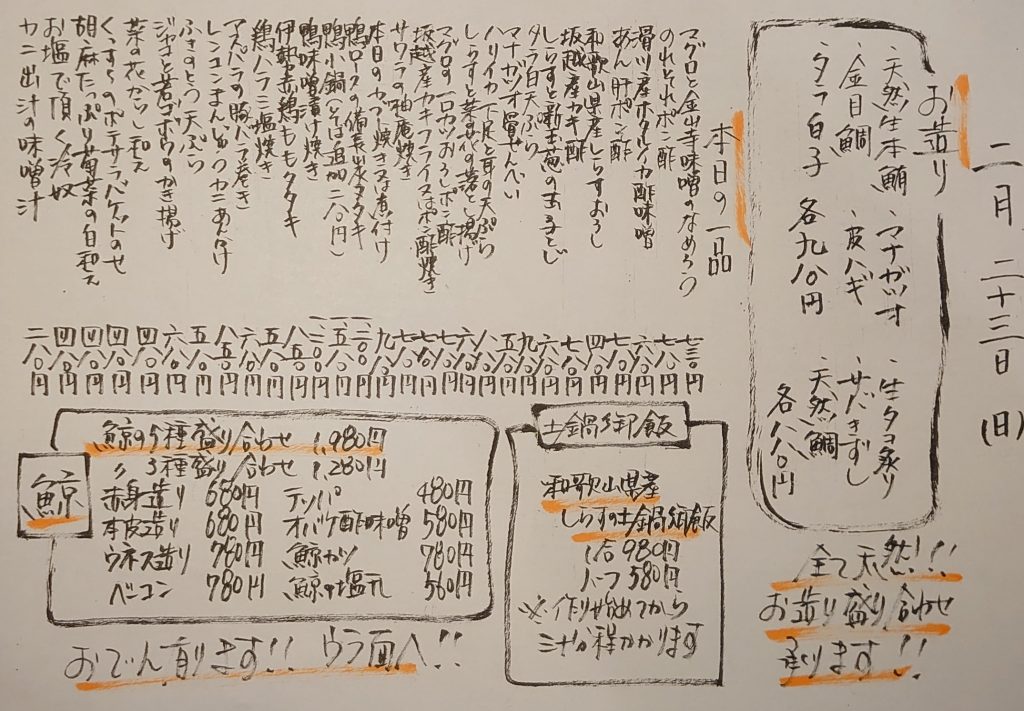 二月二十三日(日)
お造り
・天然生本鮪 ・マナガツオ ・生タコ炙り
・金目鯛 ・皮ハギ ・サバきずし
・タラ白子 各九八〇円 天然鯛 各八八〇円
全て天然!!!
お造り盛り合わせ
承ります!!
本日の一品
マグロと金山寺味噌のなめろう 七三〇円
のれそれポン酢 七八〇円
滑川産ホタルイカ酢味噌 六八〇円
あん肝ポン酢 七八〇円
和歌山県産しらすおろし 四八〇円
坂越産カキ酢 七八〇円
しらすと新玉葱の玉子とじ 六八〇円
タラ白天ぷら 九八〇円
マナガツオ骨せんべい 五八〇円
ハリイカ下足と耳の天ぷら 六八〇円
しらすと菜の花の落とし揚げ
マグロの一口カツおろしポン酢
坂越産カキフライ又はポン酢焼き
サワラの柚庵焼き
本日のカブト焼き又は煮付け
鴨ロースの備長炭タタキ
鴨小鍋(そば追加二八〇円)
鴨味噌漬け焼き
伊勢赤鶏ももタタキ
鶏ハラミ塩焼き
アスパラの豚バラ巻き
レンコンまんじゅうカニあんかけ
ふきのとう天ぷら
ジャコと若ゴボウのかき揚げ
菜の花からし和え 四八〇円
くんすうのポテサラバゲットのせ 四八〇円
胡麻たっぷり菊菜の白和え 四八〇円
お塩で頂く冷奴 四八〇円
カニ出汁の味噌汁 二八〇円
土鍋御飯
和歌山県産
しらすの土鍋御飯
1合 980円
ハーフ 580円
※作り始めてから
三十分程かかります
鯨
鯨の5種盛り合わせ 1,980円
〃 3種盛り合わせ 1,280円
赤身造り 680円 テッパ 480円
本皮造り 680円 オバケ酢味噌 580円
ウネス造り 780円 鯨カツ 780円
ベーコン 780円 鯨の塩 560円
おでん有ります!! ウラ面へ!!